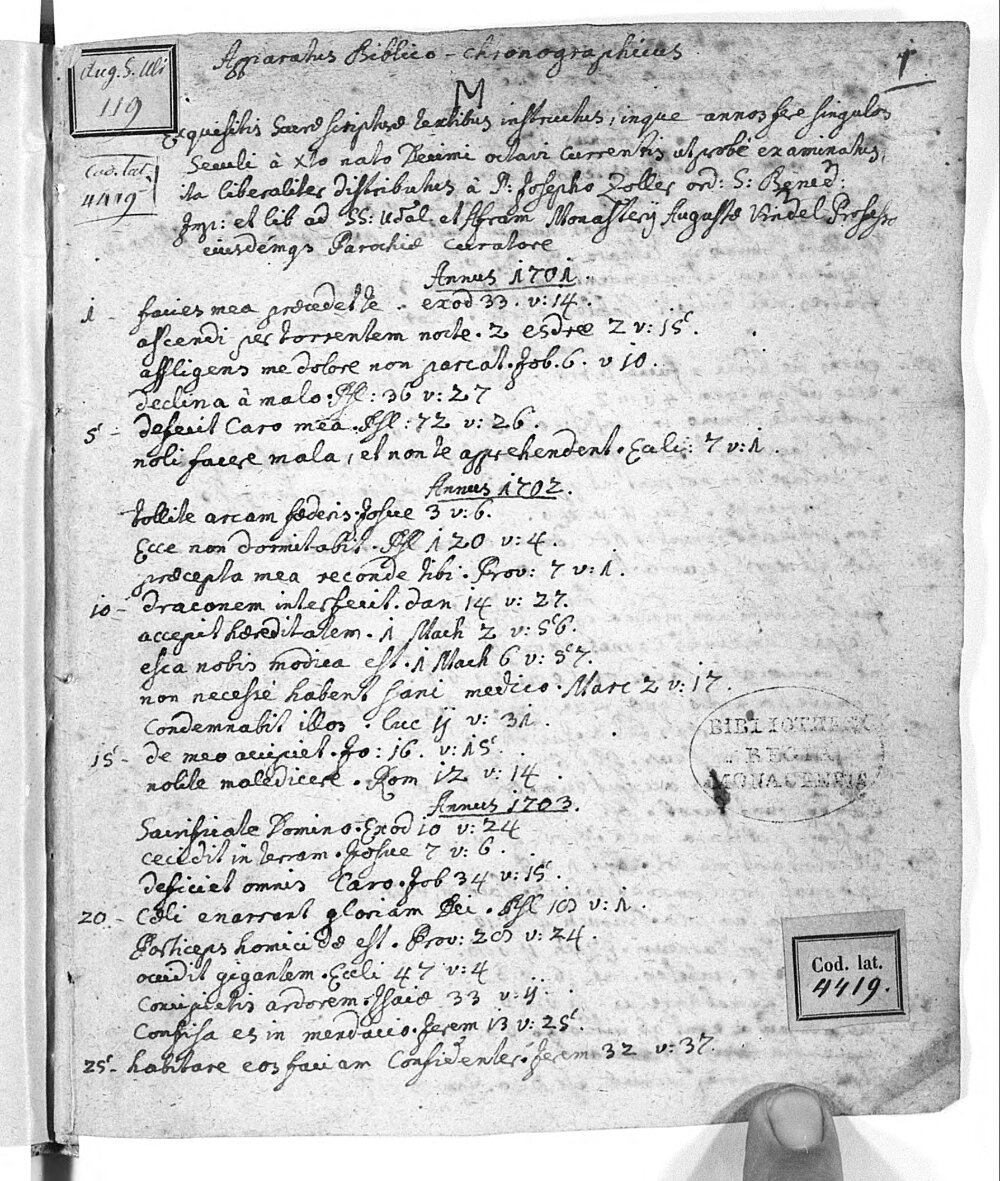 Apparatus Biblico-chronographicus
1
Aug. S. Uli
119
M
Exquisitis Sacræ scripturæ textibus instructus, inque annos fere singulos
Seculi à Xto nato Decimi octavi currentis ut probè examinatus,
ita liberaliter distributus à P: Josepho Zoller ord: S: Bened:
Imp: et lib ad SS: Udal et Afram Monasterÿ Augustæ Vindel Professo
eiusdémqs Parochiæ Curatore
Cod. lat.
4419
Annus 1701.
1 - facies mea præcedet te . exod 33 . v: 14 .
ascendi per torrentem nocte . 2 esdræ 2 v: 15 .
affligens me dolore non parcat . Job . 6 . v 10 .
declina à malo . Psl : 36 v: 27
5 - defecit Caro mea . Psl : 72 v: 26 .
noli facere mala, et non te apprehendent . Eccli : 7 v: 1 .
Annus 1702.
tollite arcam fæderis . Josue 3 v: 6 .
Ecce non dormitabit . Psl 120 v: 4 .
præcepta mea reconde tibi . Prov: 7 v: 1 .
10 - draconem interfecit . dan 14 v: 27 .
accepit hæreditatem . 1 Mach 2 v: 56 .
esca nobis modica est . 1 Mach 6 v: 57 .
non necesse habent sani medico . Marc 2 v: 17 .
Condemnabit illos . luc ij v: 31 .
15 - de meo accipiet . Jo: 16 . v: 15 .
nolite maledicere . Rom 12 v: 14 .
Annus 1703.
Sacrificate Domino . Exod 10 v: 24
cecidit in terram . Josue 7 v: 6 .
deficiet omnis Caro . Job 34 v: 15 .
20 - Cœli enarrant gloriam Dei . Psl 18 v: 1 .
Particeps homicidæ est . Prov: 28 v: 24 .
occidit gigantem . Eccli 47 v: 4
Concipietis ardorem . Isaiæ 33 v: ij .
Confisa es in mendacio . Jerem 13 v: 25 .
25 - habitare eos faciam Confidenter . Jerem 32 v: 37 .
BIBLIOTHECA
REGIA
MONACENSIS
Cod. lat.
4419.